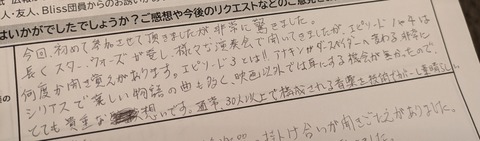 人・友人、Bliss団員からのお誘い
はいかがでしたでしょうか？ご感想や今後のリクエストなどのご意見
今回、初めて参加させて頂きましたが非常に驚きました。
長くスター・ウォーズが愛し、様々な演奏会で聞いてきましたが、エピソード1や4は
何度か聞き覚えがあります。エピソード3とは、アナキンがダースベイダーへ変わる非常に
シリアスで楽しい物語の曲も多く、映画以外では耳にする機会が無かったので、
とても貴重な想いです。通常、30人以上で構成される音楽を技術でカバーし素晴らし
掛け合いが聞きごたえがありました。